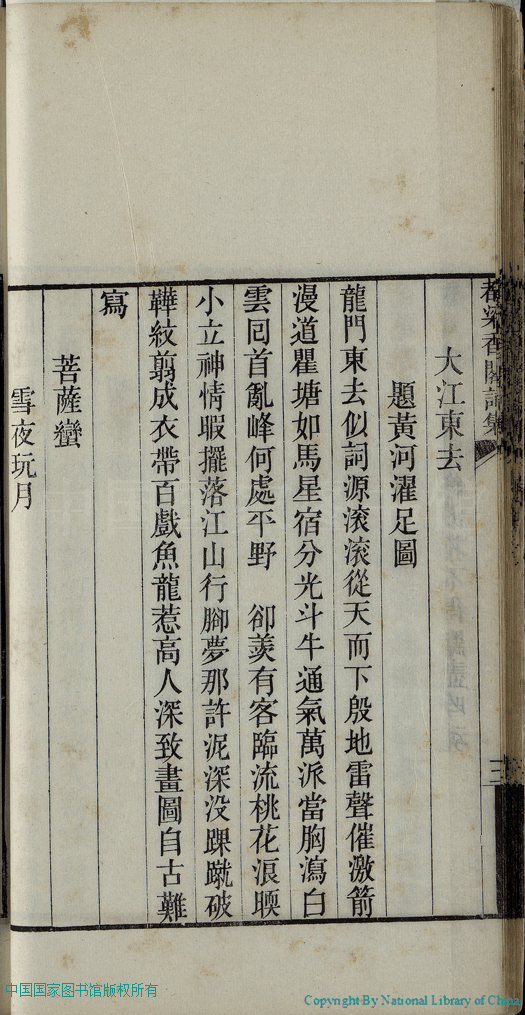 大江東去
題黃河濯足圖
龍門東去似詞源滾滾從天而下殷地雷聲催激箭
漫道瞿塘如馬星宿分光斗牛通氣萬派當胸瀉白
雲回首亂峰何處平野　卻羨有客臨流桃花浪暖
小立神情暇擺落江山行腳夢那許泥深没踝蹴破
鞾紋翦成衣帶百戲魚龍惹高人深致畫圖自古難
寫
菩薩蠻
雪夜玩月
中国国家图书馆版权所有
Copyright By National Library of China